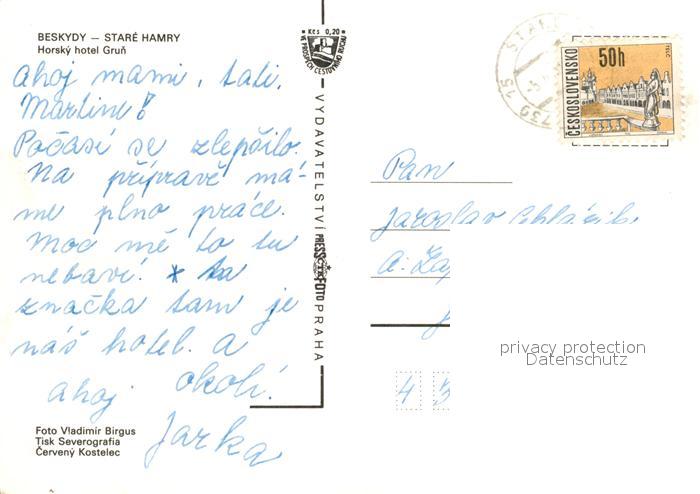 BESKYDY — STARÉ HAMRY
Horský hotel Gruň
ahoj mami, tati,
Martine!
Počasí se zlepšilo.
Na přípravě má-
me plno práce.
Moc mě to tu
nebaví! * ta
značka tam je
náš hotel. a
okolí.
ahoj
Jarka
Foto Vladimír Birgus
Tisk Severografia
Červený Kostelec
Kčs 0,20
VE PROSPĚCH CESTOVNÍHO RUCHU
VYDAVATELSTVÍ PRESSFOTO PRAHA
739 15
ČESKOSLOVENSKO
50h
TELČ
Pan
Jaroslav
A.
4 3
privacy protection
Datenschutz